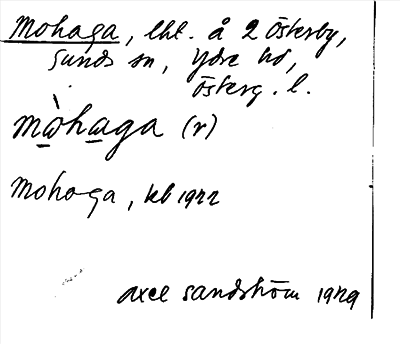 Mohaga, lht. å 2 Österby,
Sunds sn, Ydre hd,
Österg. l.
mὼhaga (r)
Mohaga, kb 1922
Axel Sandström 1929